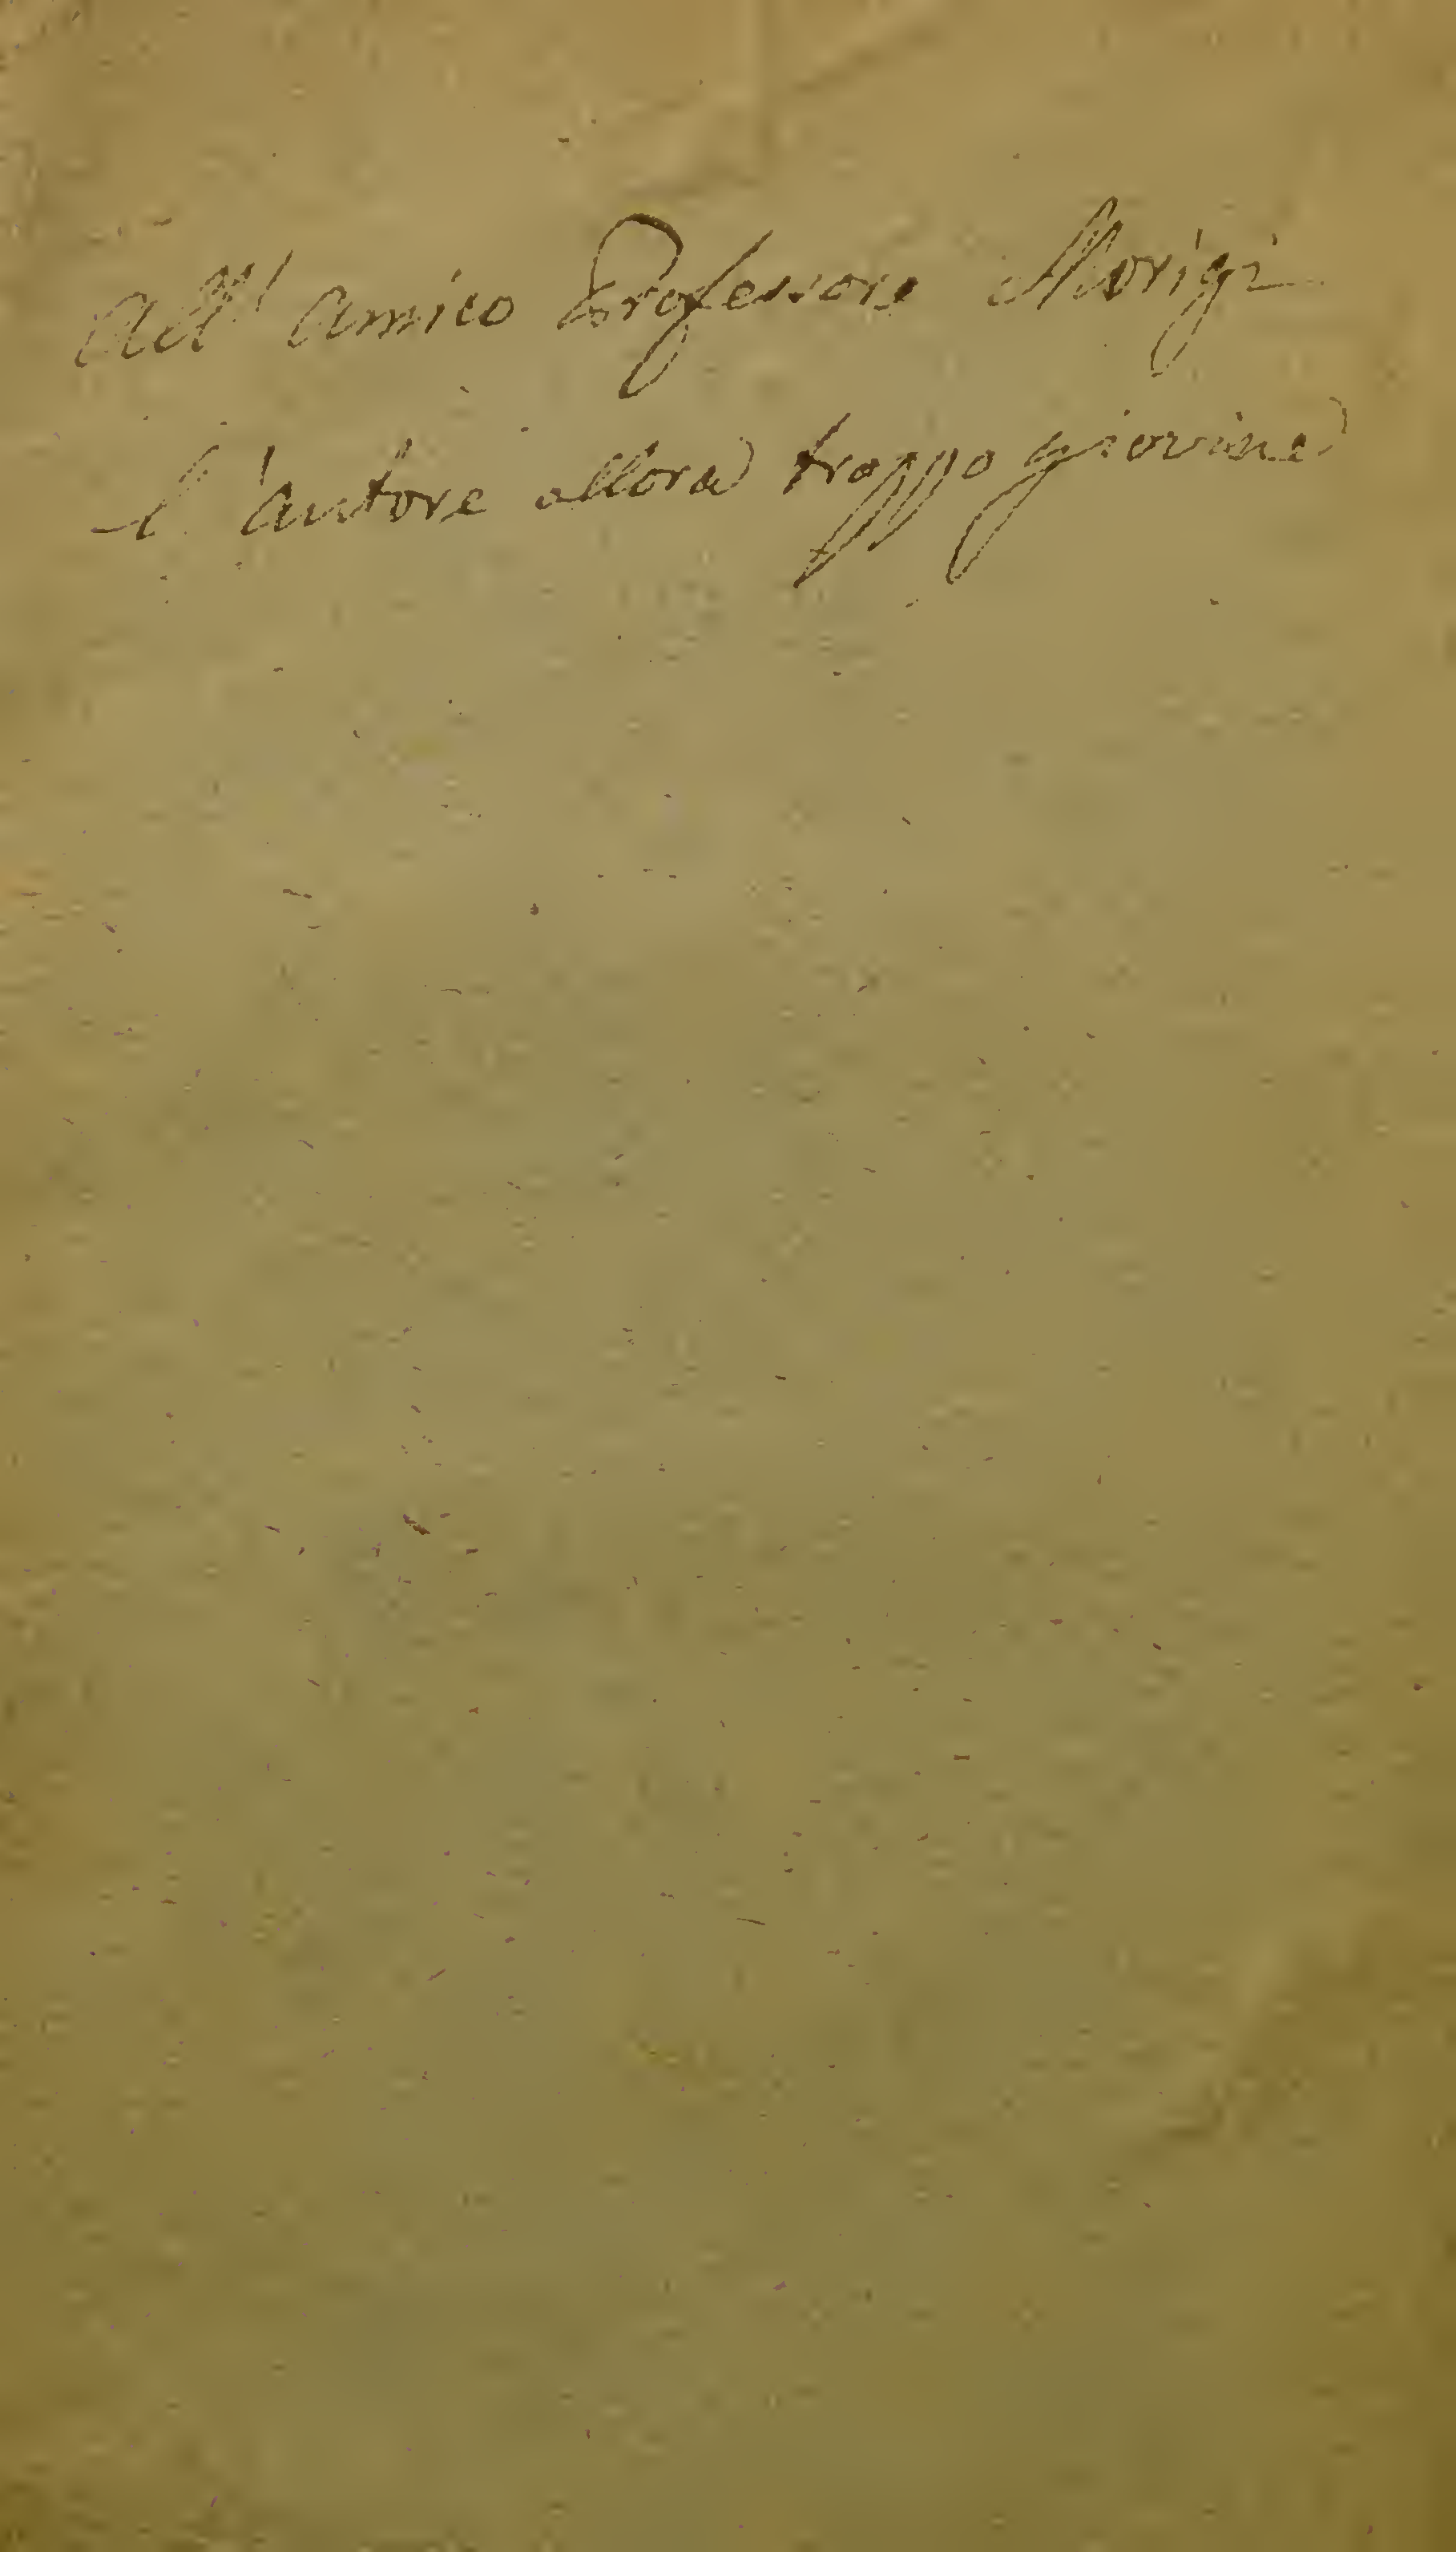 All' Amico Professore Morigi
l'autore allora troppo giovine